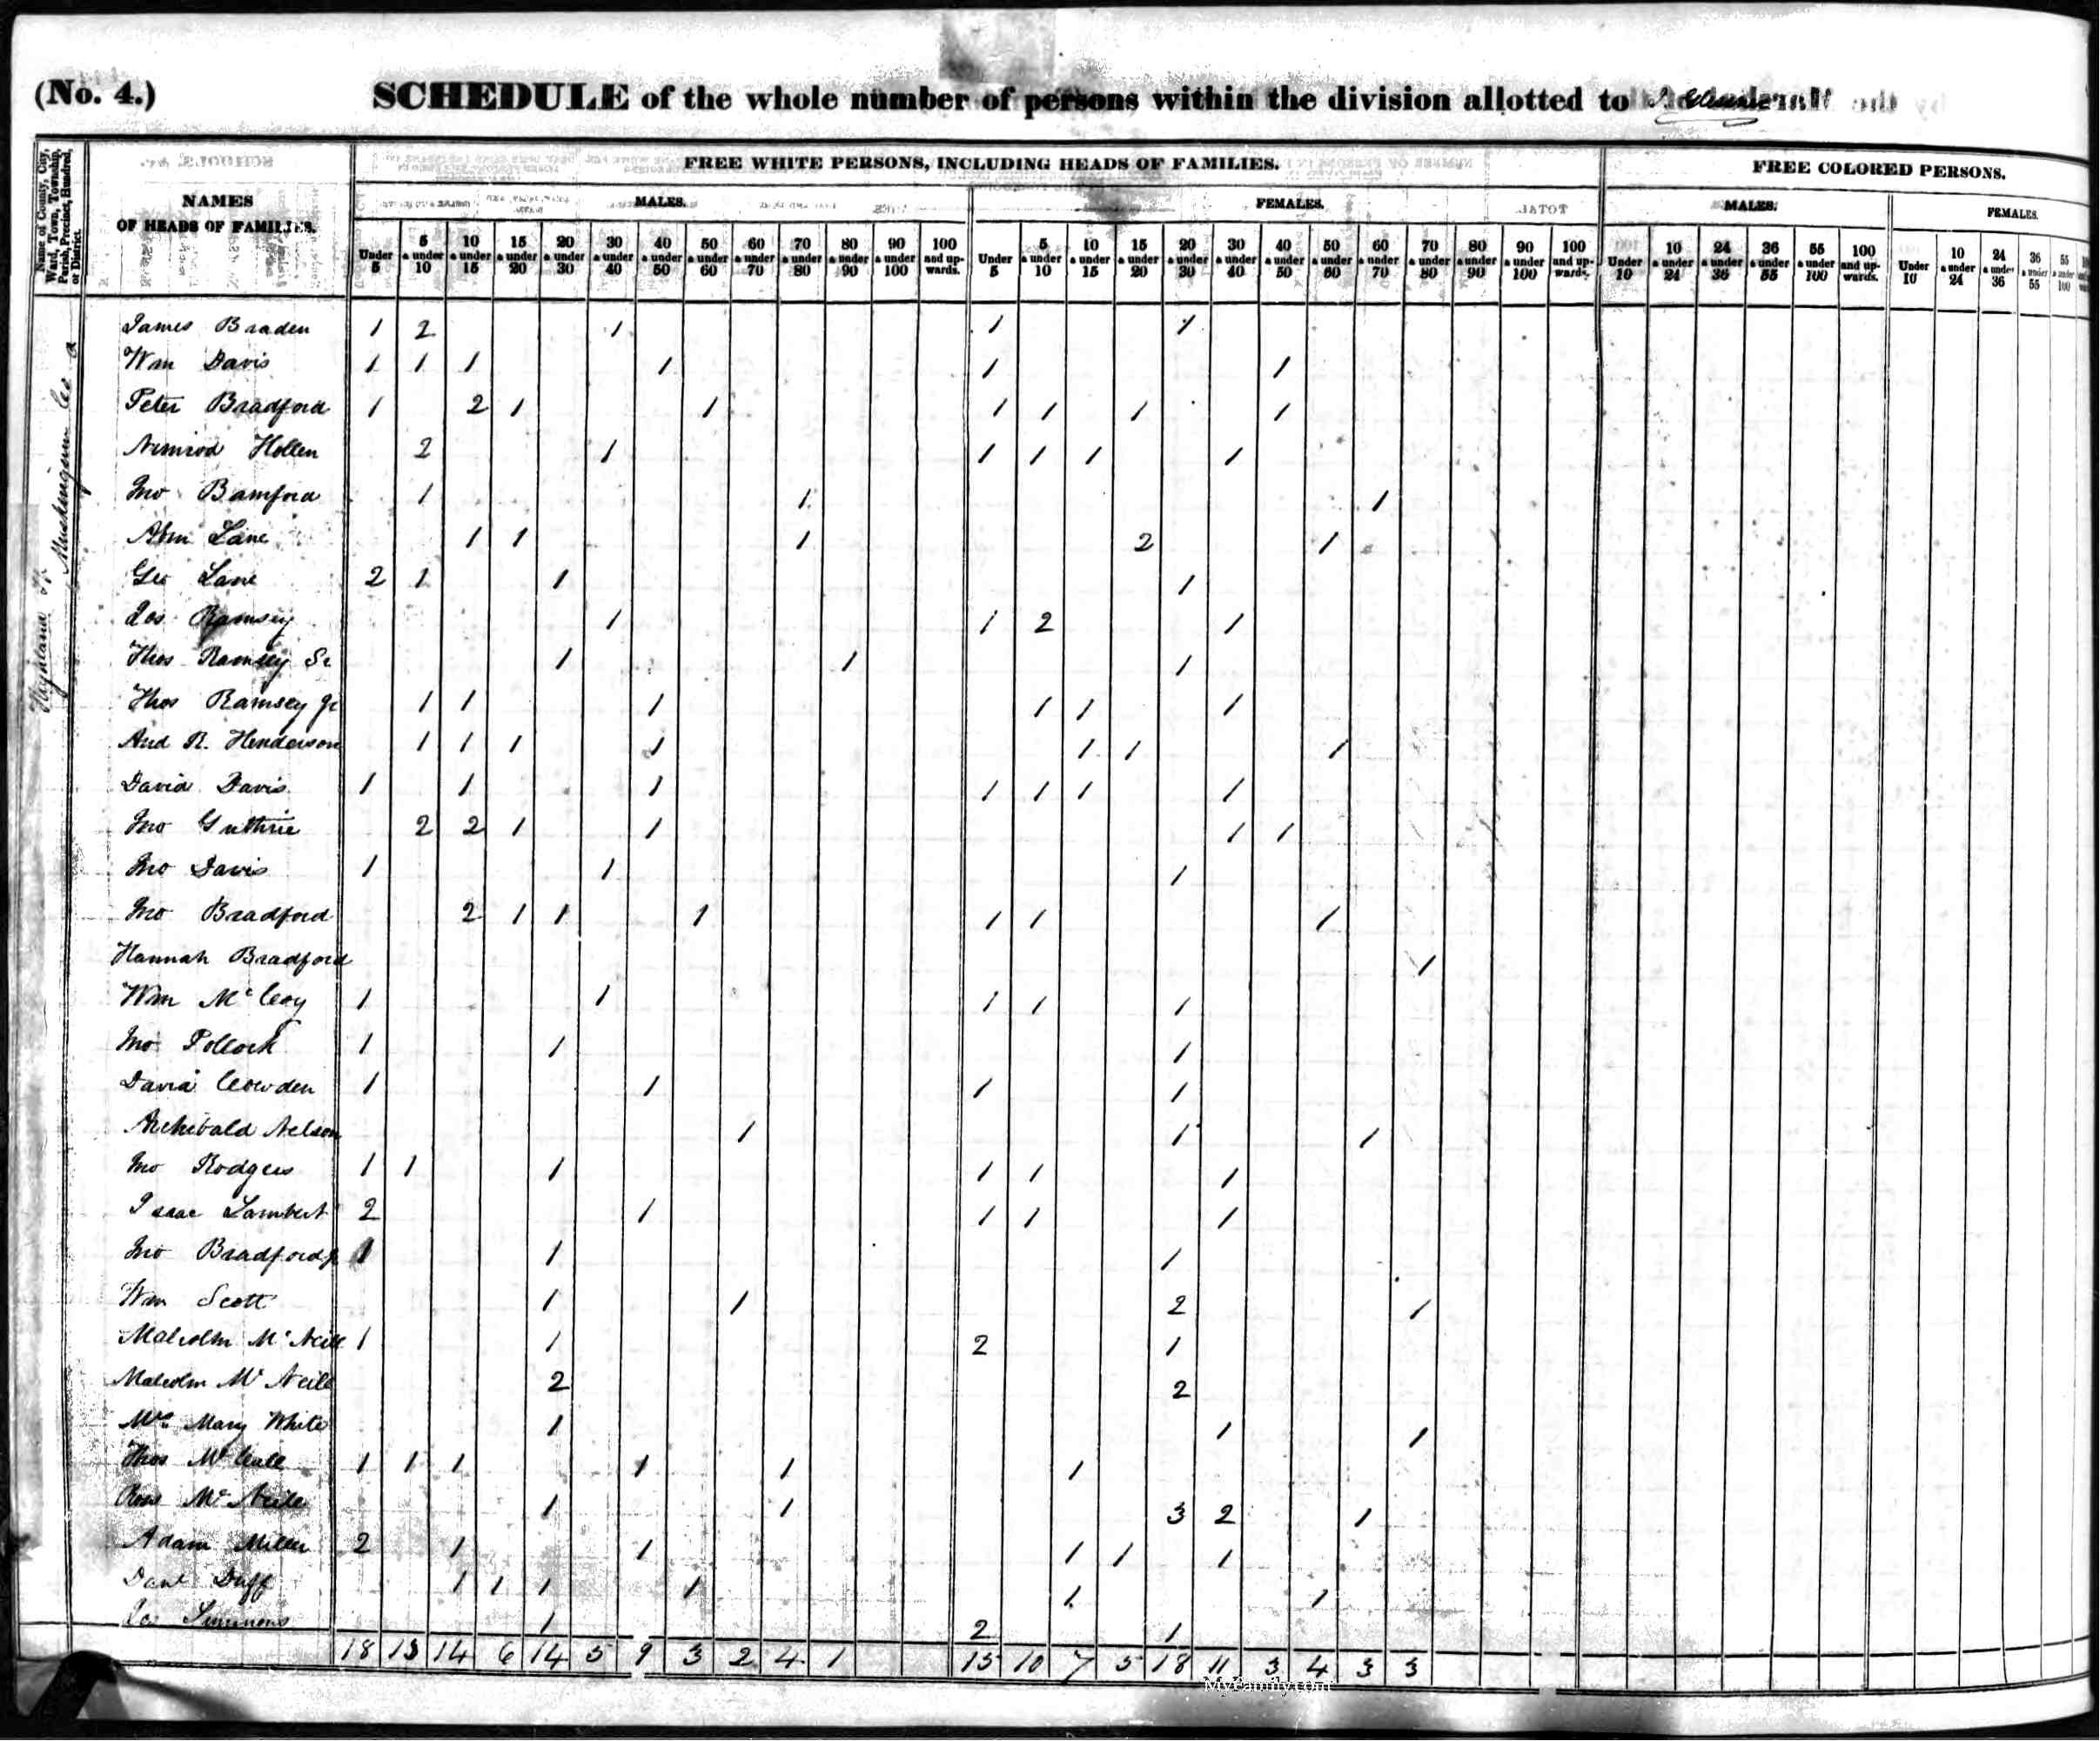 (No. 4.) SCHEDULE of the whole number of persons within the division allotted to
Name of County, City, Ward, Town, Township, Parish, Precinct, Hundred, or District.
NAMES OF HEADS OF FAMILIES.
FREE WHITE PERSONS, INCLUDING HEADS OF FAMILIES.
FREE COLORED PERSONS.
MALES. FEMALES. MALES. FEMALES.
Under 5 5 & under 10 10 & under 15 15 & under 20 20 & under 30 30 & under 40 40 & under 50 50 & under 60 60 & under 70 70 & under 80 80 & under 90 90 & under 100 100 and upwards.
Under 5 5 & under 10 10 & under 15 15 & under 20 20 & under 30 30 & under 40 40 & under 50 50 & under 60 60 & under 70 70 & under 80 80 & under 90 90 & under 100 100 and upwards.
Under 10 10 & under 24 24 & under 36 36 & under 55 55 & under 100 100 and upwards.
Under 10 10 & under 24 24 & under 36 36 & under 55 55 & under 100
Muskingum Co
James Braden 1 2 1 1 1
Wm Davis 1 1 1 1 1 1
Peter Bradford 1 2 1 1 1 1 1 1
Nimrod Hollen 2 1 1 1 1 1
Jno Bamford 1 1 1
Abm Lane 1 1 1 2 1
Geo Lane 2 1 1 1
Jos Ramsey 1 1 2 1
Thos Ramsey Sr 1 1 1
Thos Ramsey Jr 1 1 1 1 1 1
And R. Henderson 1 1 1 1 1 1 1
David Davis 1 1 1 1 1 1 1
Jno Guthrie 2 2 1 1 1 1
Jno Davis 1 1 1
Jno Bradford 2 1 1 1 1 1 1
Hannah Bradford 1
Wm McCoy 1 1 1 1 1
Jno Pollock 1 1 1
David Cowden 1 1 1 1
Archibald Nelson 1 1 1
Jno Rodgers 1 1 1 1 1 1
Isaac Lambert 2 1 1 1 1
Jno Bradford Jr 1 1 1
Wm Scott 1 1 2 1
Malcolm McNeill 1 1 2 1
Malcolm McNeill 2 2
Mrs Mary White 1 1 1
Thos 1 1 1 1 1 1
Ross McNeile 1 1 3 2 1
Adam Miller 2 1 1 1 1 1
Danl Duff 1 1 1 1 1 1
Simmons 1 2 1
18 13 14 6 14 5 9 3 2 4 1 15 10 7 5 18 11 3 4 3 3
MyFamily.com